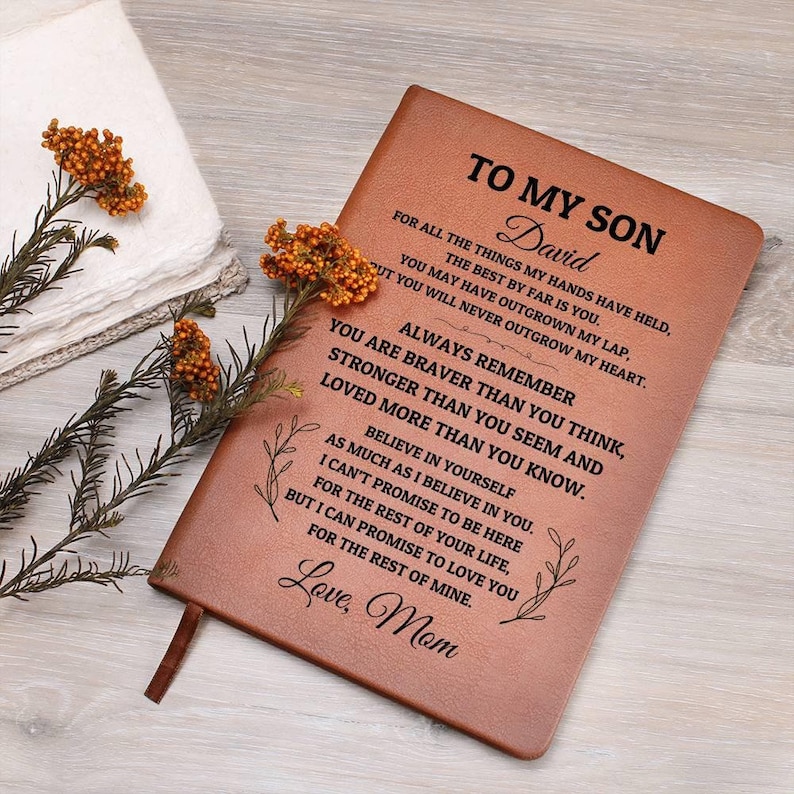 TO MY SON
David
FOR ALL THE THINGS MY HANDS HAVE HELD,
THE BEST BY FAR IS YOU.
YOU MAY HAVE OUTGROWN MY LAP,
BUT YOU WILL NEVER OUTGROW MY HEART.
ALWAYS REMEMBER
YOU ARE BRAVER THAN YOU THINK,
STRONGER THAN YOU SEEM AND
LOVED MORE THAN YOU KNOW.
BELIEVE IN YOURSELF
AS MUCH AS I BELIEVE IN YOU.
I CAN'T PROMISE TO BE HERE
FOR THE REST OF YOUR LIFE,
BUT I CAN PROMISE TO LOVE YOU
FOR THE REST OF MINE.
Love, Mom